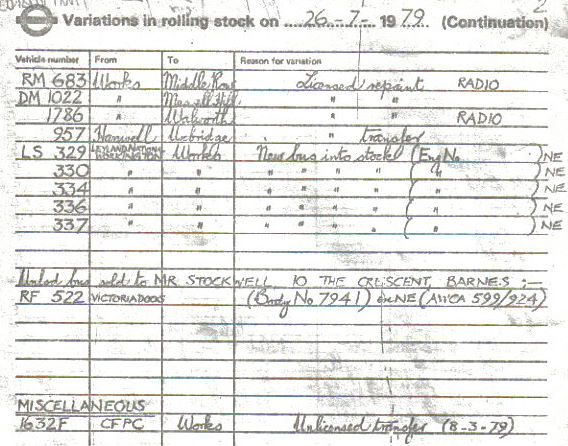 Variations in rolling stock on 26-7- 1979 (Continuation) 2
Vehicle number From To Reason for variation
RM 683 Works Middle Row Licensed repaint RADIO
DM 1022 " Muswell Hill " "
1786 " Walworth " " RADIO
957 Hanwell Uxbridge " transfer
LS 329 LEYLAND NATIONAL WORKINGTON Works New bus into stock (Eng No ) NE
330 " " " " " " ( " ) NE
334 " " " " " " ( " ) NE
336 " " " " " " ( " ) NE
337 " " " " " " ( " ) NE
bus sold to MR STOCKWELL 10 THE CRESCENT, BARNES :—
RF 522 VICTORIA DOCKS (Body No 7941) ex NE (AWCA 599/924)
MISCELLANEOUS
1632F CFPC Works Unlicensed transfer (8-3-79)